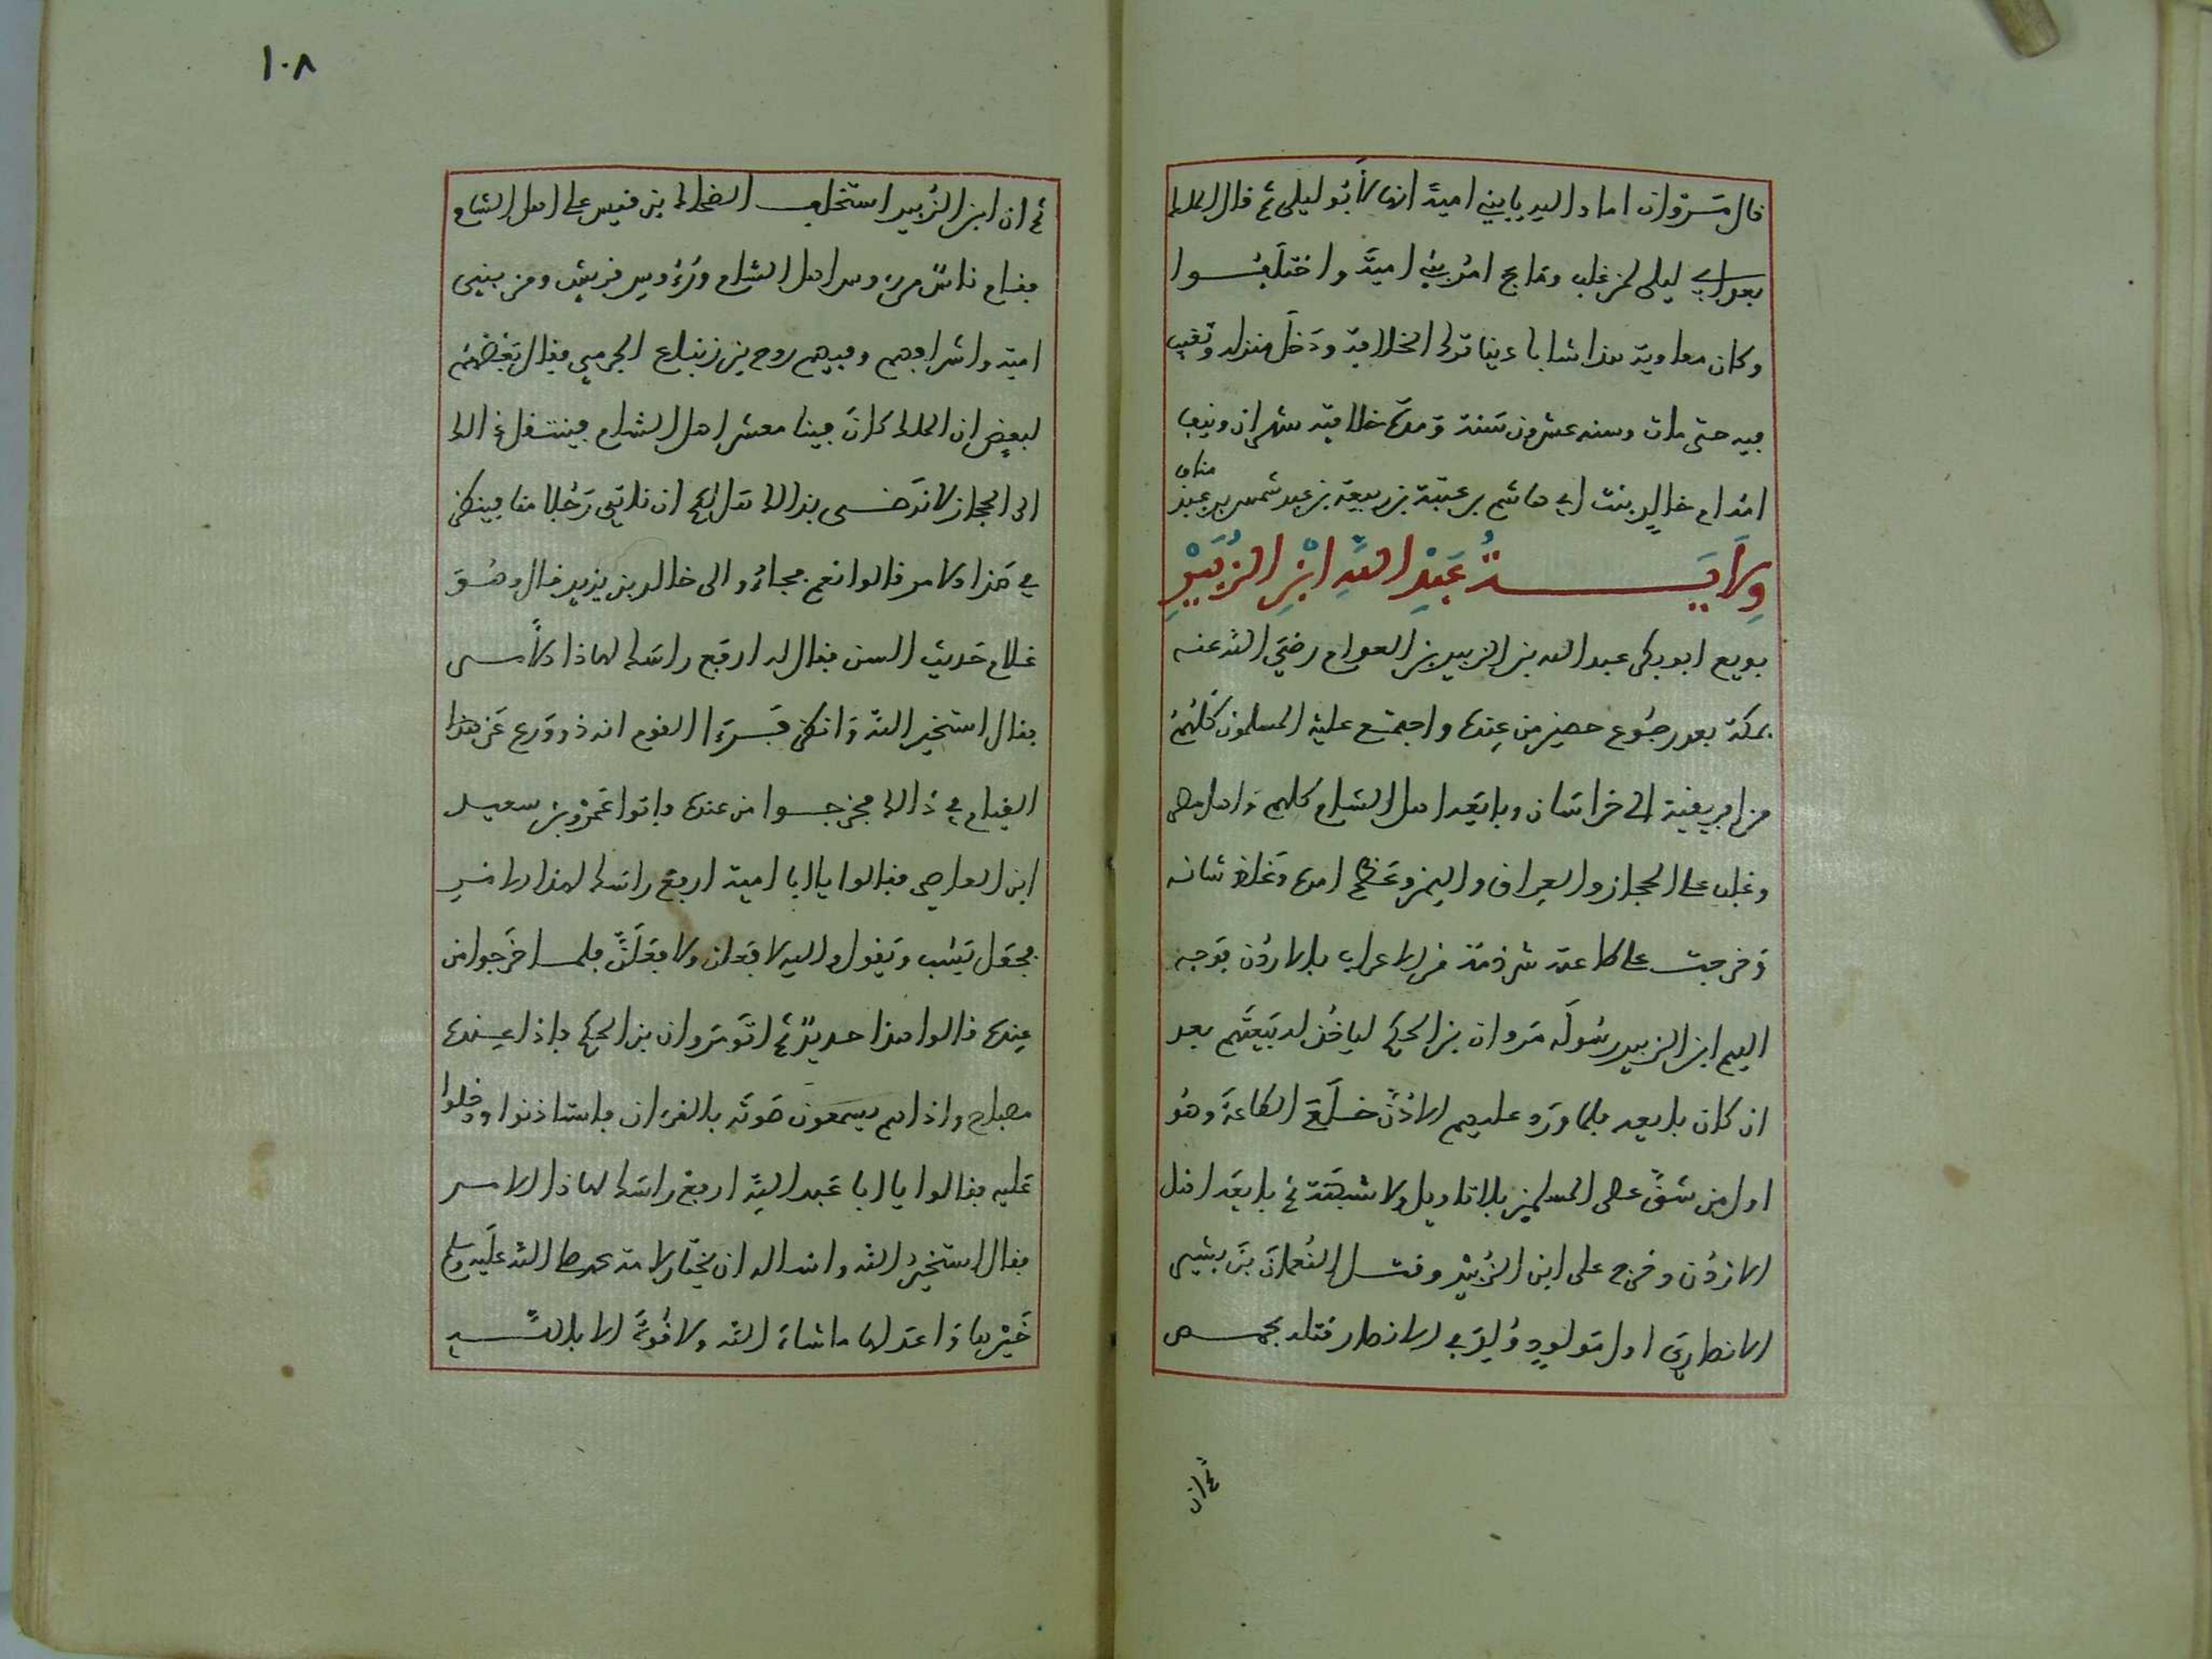 قال مروان اما والله يا بني امية انها لأبو ليلى ثم قال الملك
بعد أبي ليلى لمن غلب وماج امر بني امية واختلفوا
وكان معاوية هذا شابا دينا ترك الخلافة ودخل منزله وتغيب
فيه حتى مات وسنه عشرون سنة ومدة خلافته شهران ونيف
امه ام خالد بنت ابي هاشم بن عتبة بن ربيعة بن عبد شمس بن عبد مناف
وِلَايَةُ عَبْدِ اللَّهِ ابْنِ الزُّبَيْرِ
بويع ابو بكر عبد الله بن الزبير بن العوام رضي الله عنه
بمكة بعد رجوع حصين من عنده واجتمع عليه المسلمون كلهم
من افريقية الى خراسان وبايعه اهل الشام كلهم واهل مصر
وغلب على الحجاز والعراق واليمن وعظم امره وغلظ شانه
وخرجت على طاعته شرذمة من الاعراب بالاردن فوجه
اليهم ابن الزبير رسوله مروان بن الحكم لياخذ له بيعتهم بعد
ان كان بايعه فلما ورد عليهم الاردن خلع الطاعة وهو
اول من شق عصى المسلمين بلا تاويل ولا شبهة ثم بايعه اهل
الاردن وخرج على ابن الزبير وقتل النعمان بن بشير
الانصاري اول مولود ولد في الانصار قتله بحمص
ثم ان
١٠٨
ثم ان ابن الزبير استخلف الضحاك بن قيس على اهل الشام
فقام ناس من رءوس اهل الشام ورءوس قريش ومن بني
امية واشرافهم وفيهم روح بن زنباع الجرمي فقال بعضهم
لبعض ان الملك كان فينا معشر اهل الشام فينتقل عنا الى
الى الحجاز لا نرضى بذالك هل لكم ان ناتي رجلا منا فينظر
في هذا الامر قالوا نعم فجاءوا الى خالد بن يزيد قال وهو
غلام حديث السن فقال له ارفع راسك لهاذا الأمر
فقال استخير الله وانظر فرءا القوم انه ذو ورع عن هذا
القيام في ذالك فخرجوا من عنده فاتوا عمرو بن سعيد
ابن العاصي فقالوا يا ابا امية ارفع راسك لهذا الامر
فجعل يشب ويقول والله لافعلن ولافعلن فلما خرجوا من
عنده قالوا هذا حديد ثم اتوا مروان بن الحكم فاذا عنده
مصباح واذا هم يسمعون صوته بالقرءان فاستاذنوا ودخلوا
عليه فقالوا يا ابا عبد الله ارفع راسك لهاذا الامر
فقال استخير الله واساله ان يختار لامة محمد صلى الله عليه وسلم
خيرها واعدلها ما شاء الله ولا قوة الا بالله